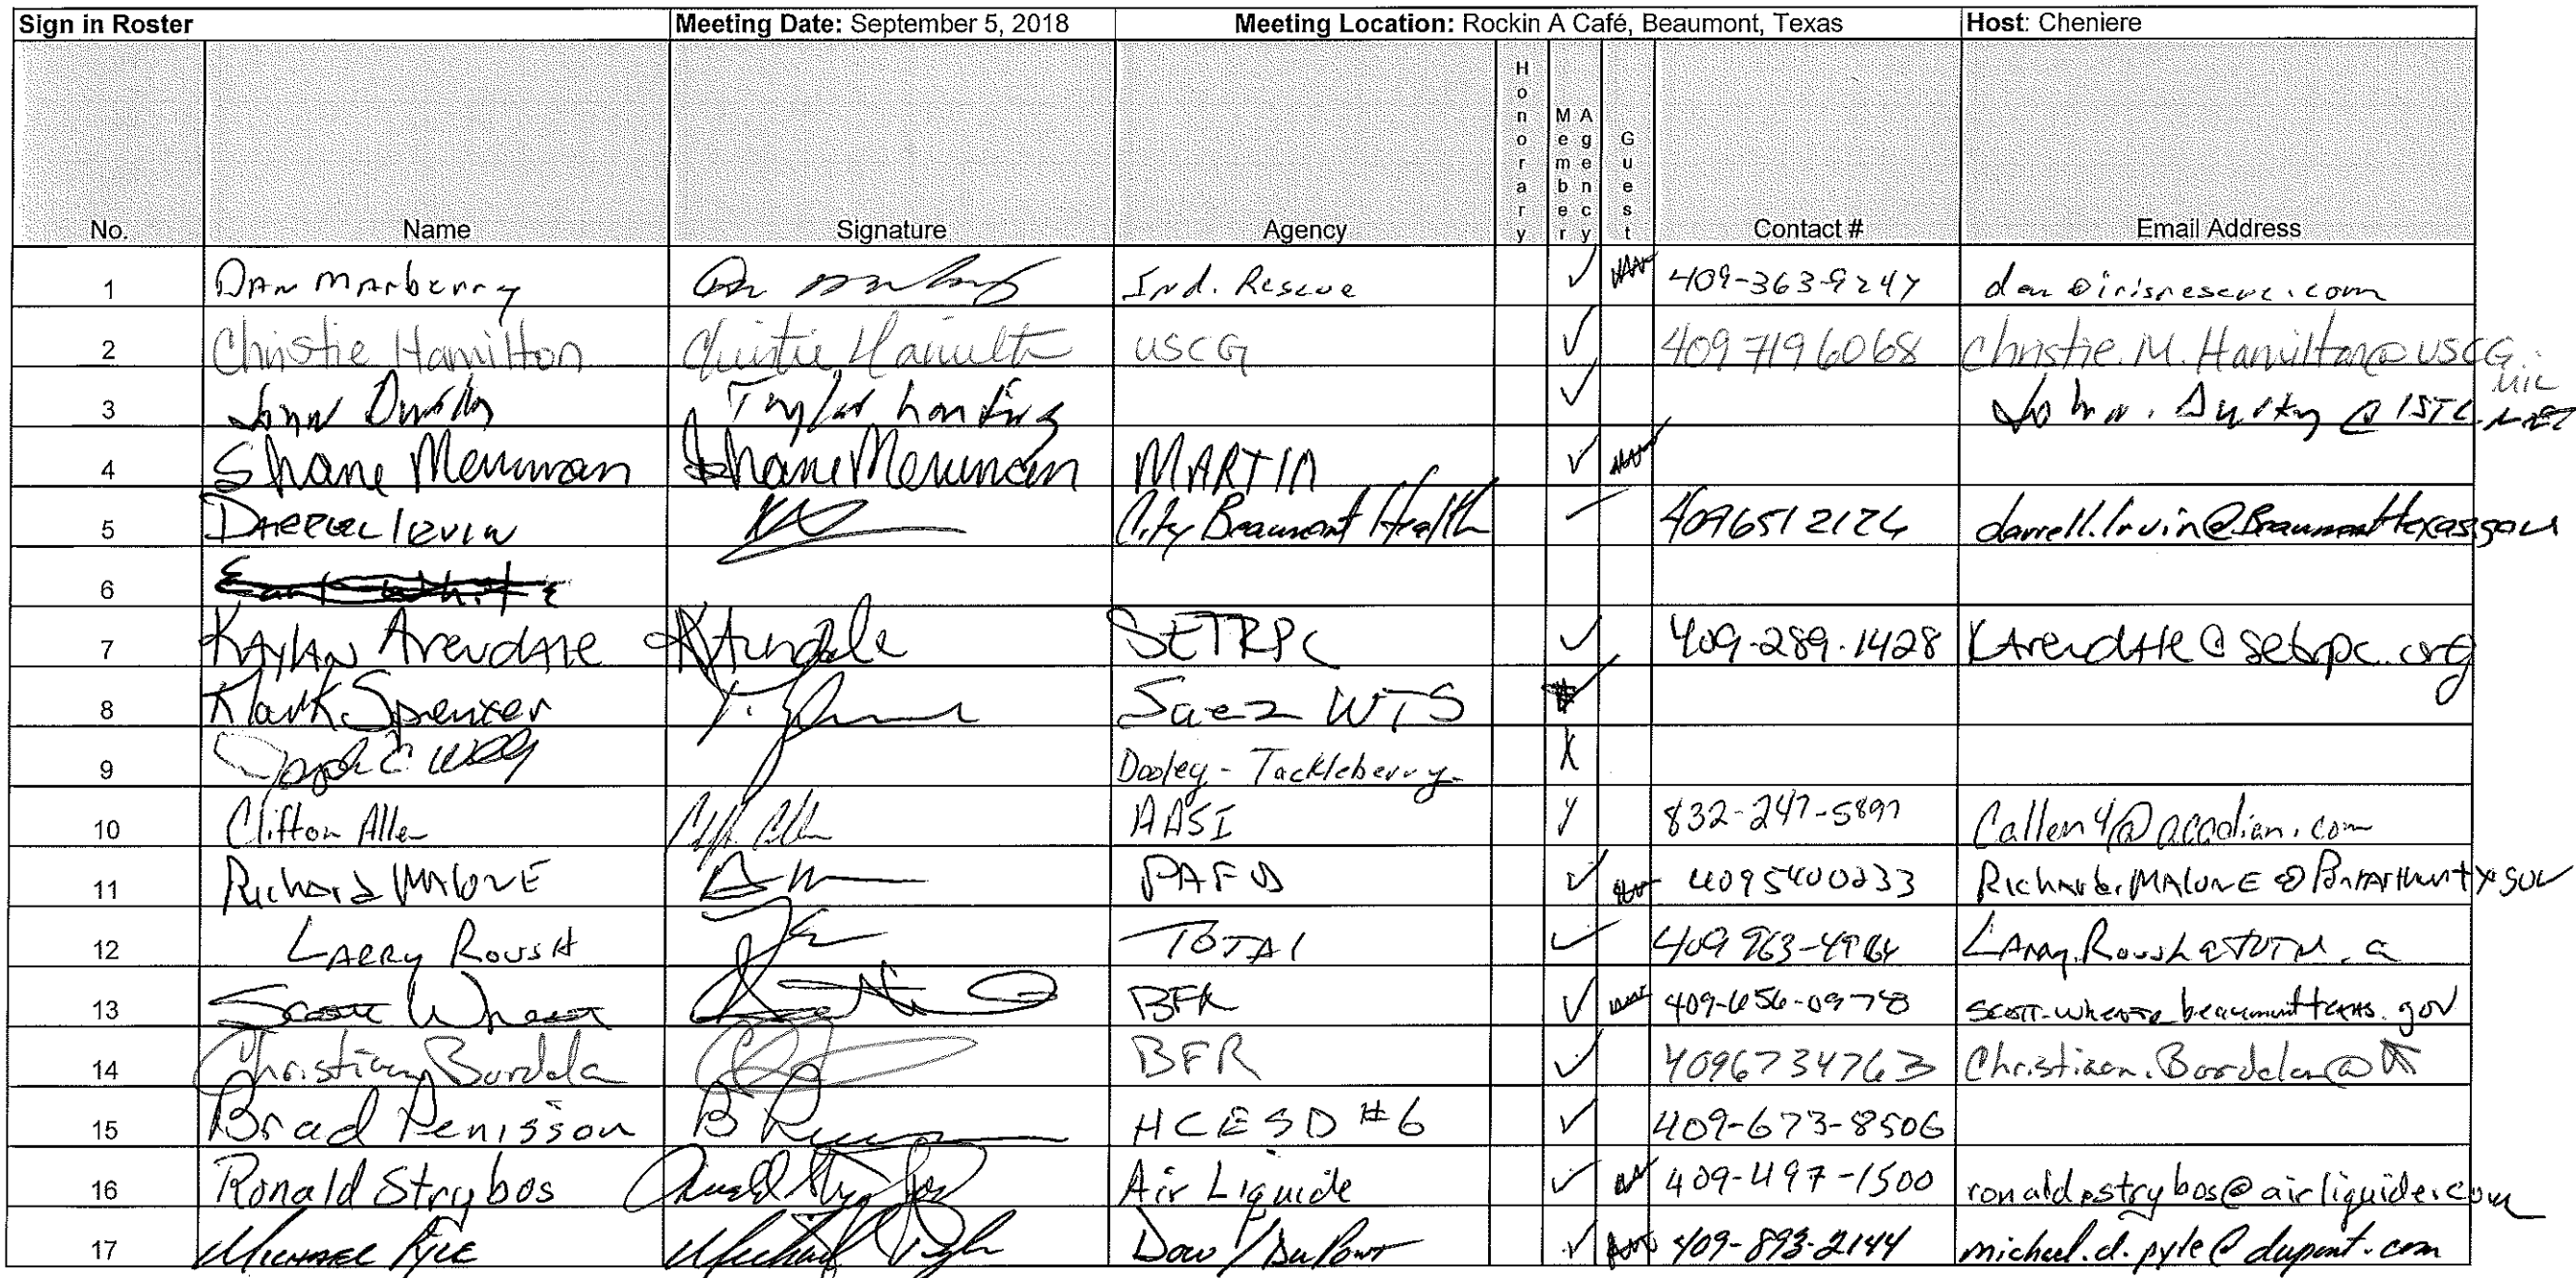 Sign in Roster Meeting Date: September 5, 2018 Meeting Location: Rockin A Café, Beaumont, Texas Host: Cheniere
No. Name Signature Agency Honorary Member Agency Guest Contact # Email Address
1 Dan Marberry Ind. Rescue ✓ 409-363-9247 dan@irisrescue.com
2 Christie Hamilton Christie Hamilton USCG ✓ 4097196068 Christie.M.Hamilton@USCG.mil
3 John ✓
4 Shane Merriman Shane Merriman MARTIN ✓
5 Darrell Irvin City Beaumont Health 4096512126 darrell.Irvin@Beaumonttexas.gov
6
7 Kaylan Arendale KArendale SETRPC ✓ 409-289-1428 KArendale@setrpc.org
8 Klark Spencer Suez WTS
9 Joseph C Dooley-Tackleberry X
10 Clifton Allen AASI 832-247-5897 Callen4@acadian.com
11 Richard Malone PAFD ✓ 4095400233
12 Larry Roush TOTAl ✓
13 Scott ✓ 409-656-0978
14 Christian BFR ✓ 4096734763
15 Brad Penisson HCESD #6 ✓ 409-673-8506
16 Ronald Strybos Ronald Strybos Air Liquide ✓ 409-497-1500 ronald.strybos@airliquide.com
17 Michael Pyle Michael Pyle Dow/DuPont ✓ 409-893-2144 michael.d.pyle@dupont.com